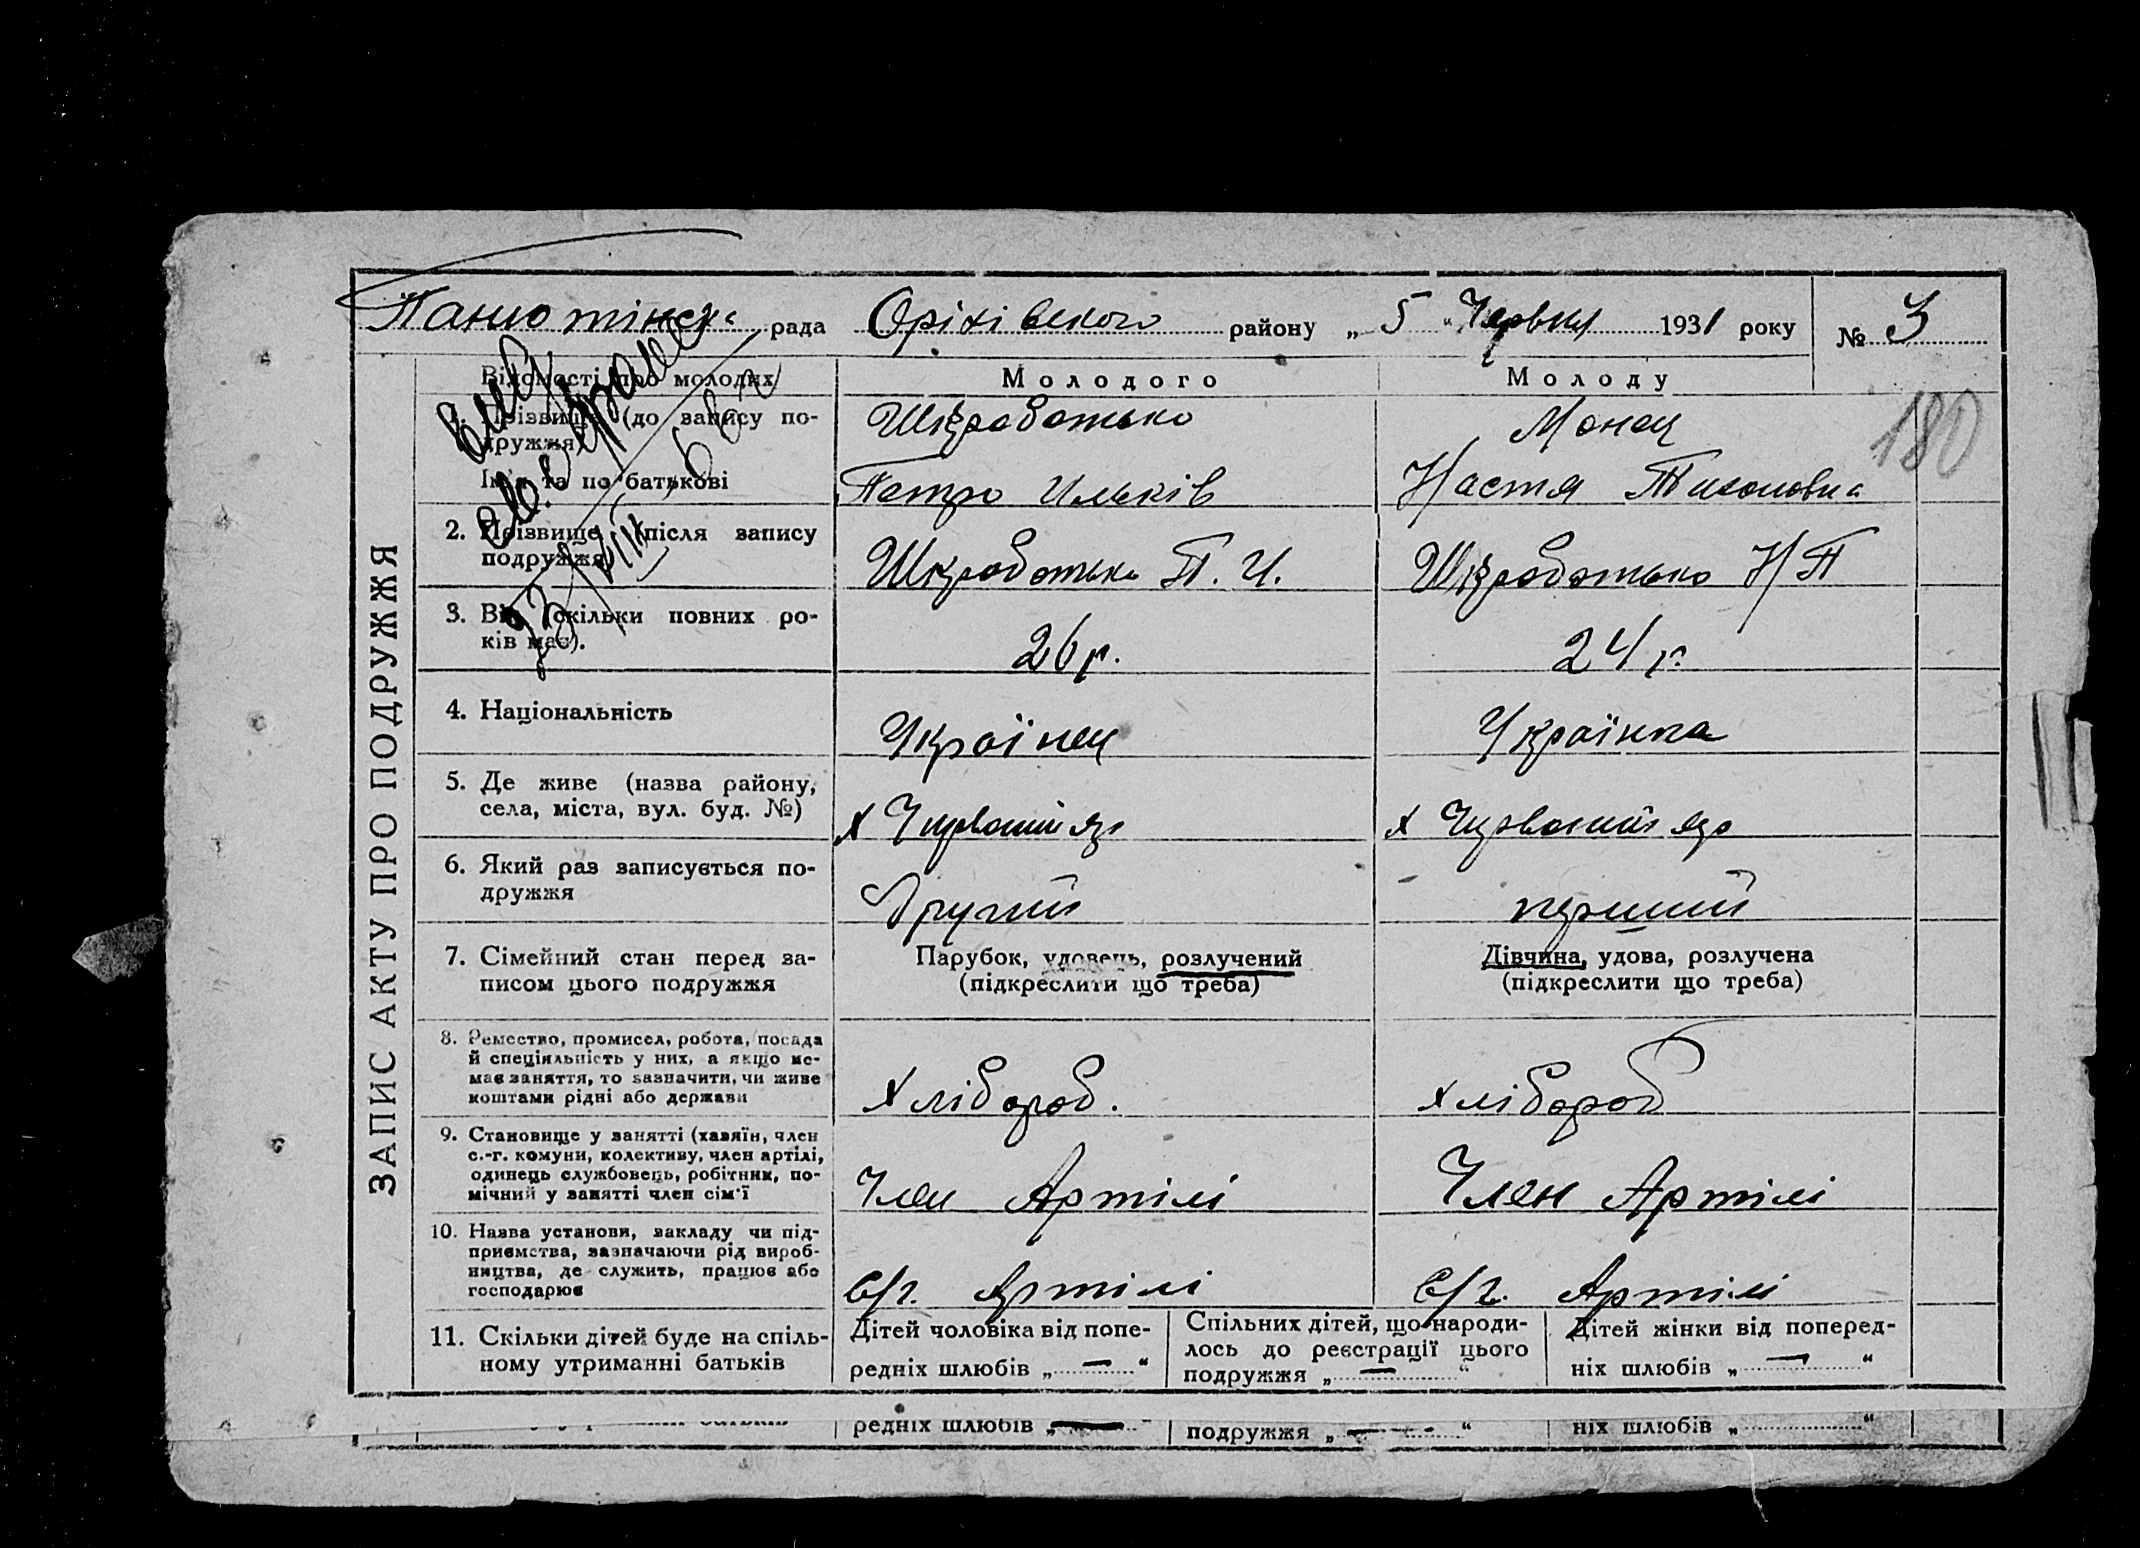 рада Оріхівського району „ 5 “ Червня 1931 року № 3
Відомості про молодих
Молодого Молоду
180
1. Прізвище (до запису подружжя)
Шкработько Монец
Ім'я та по батькові
Петро Ильків Настя Тихоновна
2. Прізвище (після запису подружжя)
Шкработько П. И. Шкработько Н Т
3. Вік (скільки повних років має).
26 р. 24 р.
4. Національність
Українец Українка
5. Де живе (назва району, села, міста, вул. буд. №)
х Чирвоний яр х Чирвоний яр
6. Який раз записується подружжя
Другий перший
7. Сімейний стан перед записом цього подружжя
Парубок, удовець, розлучений
(підкреслити що треба)
Дівчина, удова, розлучена
(підкреслити що треба)
8. Ремество, промисел, робота, посада
й спеціяльність у них, а якщо немає заняття, то зазначити, чи живе
коштами рідні або держави
Хлібороб. Хлібороб
9. Становище у занятті (хазяїн, член
с.-г. комуни, колективу, член артілі,
одинець службовець, робітник, помічний у занятті член сім'ї
Член Артілі Член Артілі
10. Назва установи, закладу чи підприємства, зазначаючи рід виробництва, де служить, працює або
господарює
С/г. Артілі С/г. Артілі
11. Скільки дітей буде на спільному утриманні батьків
Дітей чоловіка від попередніх шлюбів „ — “
Спільних дітей, що народилось до реєстрації цього
подружжя „ — “
Дітей жінки від попередніх шлюбів „ — “
ЗАПИС АКТУ ПРО ПОДРУЖЖЯ
редніх шлюбів „ — “ подружжя „ — “ ніх шлюбів „ “